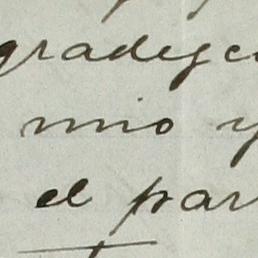 gradezc
mio y
el par